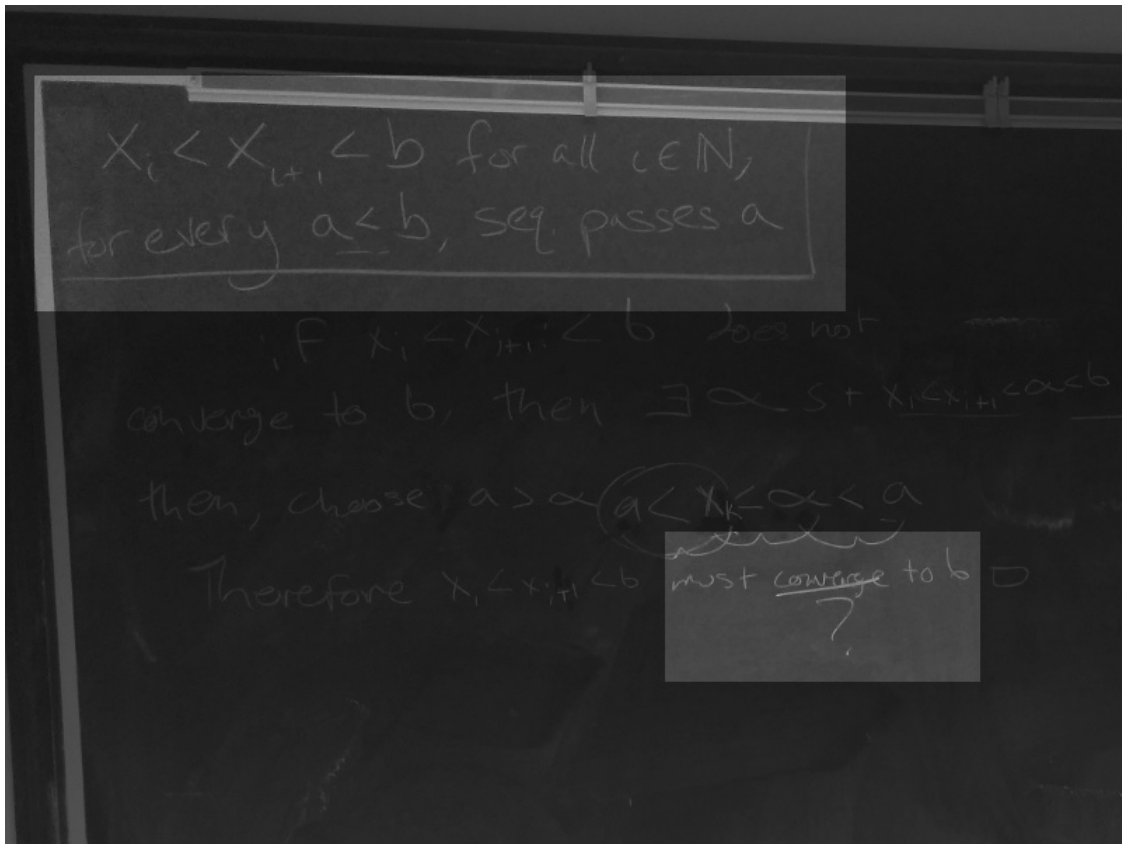 Xᵢ < Xᵢ₊₁ < b for all i ∈ ℕ,
for every a < b, seq. passes a
if xᵢ < xᵢ₊₁ < b does not
converge to b, then ∃ α st xᵢ < xᵢ₊₁ < α < b
then, choose a > α a < xₖ < α < a
Therefore xᵢ < xᵢ₊₁ < b must converge to b □
?